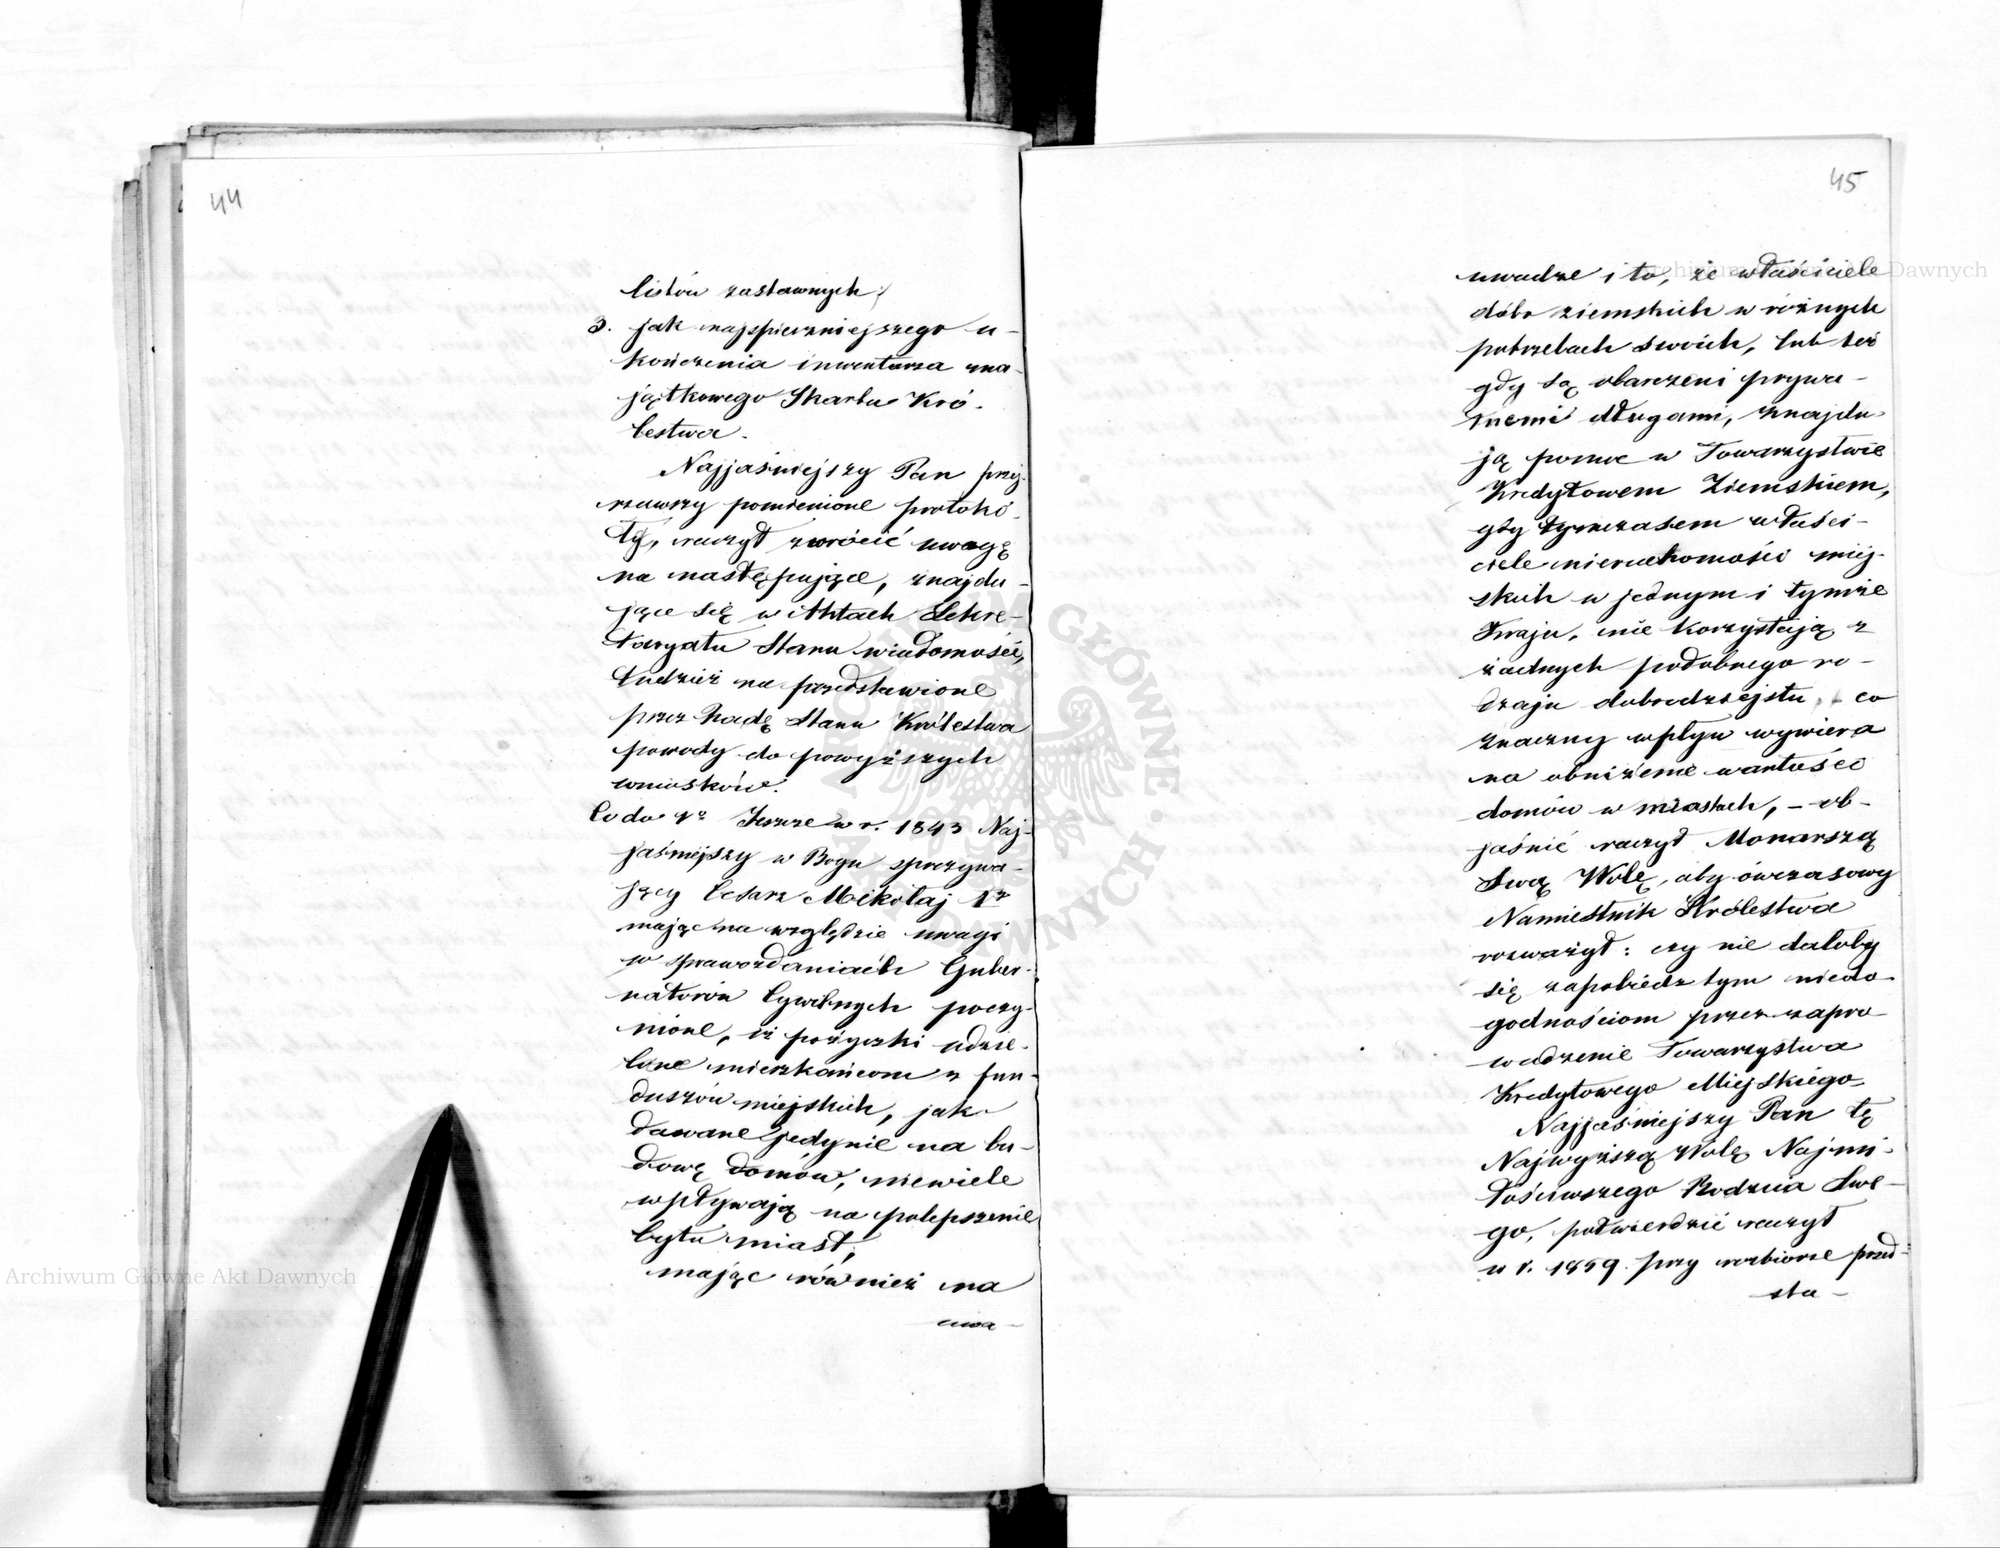 44
listów zastawnych;
3. jak najspieszniejszego u-
kończenia inwentarza ma-
jątkowego Skarbu Kró-
lestwa.
Najjaśniejszy Pan przej-
rzawszy pomienione protokó-
ły, raczył zwrócić uwagę
na następujące, znajdu-
jące się w Aktach Sekre-
taryatu Stanu wiadomości,
tudzież na przedstawione
przez Radę Stanu Królestwa
powody do powyższych
wniosków.
Co do 1º Jeszcze w r. 1843 Naj-
jaśniejszy w Bogu spoczywa-
jący Cesarz Mikołaj 1y
mając na względzie uwagi
w sprawozdaniach Guber-
natorów Cywilnych poczy-
nione, iż pożyczki udzie-
lone mieszkańcom z fun-
duszów miejskich, jak
dawane jedynie na bu-
dowę domów, niewiele
wpływają na polepszenie
bytu miast;
mając również na
uwa-
45
uwadze i to, że właściciele
dóbr ziemskich w różnych
potrzebach swoich, lub też
gdy są obarczeni prywa-
tnemi długami, znajdu-
ją pomoc w Towarzystwie
Kredytowem Ziemskiem,
gdy tymczasem właści-
ciele nieruchomości miej-
skich w jednym i tymże
Kraju, nie korzystają z
żadnych podobnego ro-
dzaju dobrodziejstw, co
znaczny wpływ wywiera
na obniżenie wartości
domów w miastach, – ob-
jaśnić raczył Monarszą
Swą Wolę, aby ówczasowy
Namiestnik Królestwa
rozważył: czy nie dałoby
się zapobiedz tym niedo-
godnościom przez zapro-
wadzenie Towarzystwa
Kredytowego Miejskiego.
Najjaśniejszy Pan tę
Najwyższą Wolę Najmi-
łościwszego Rodzica Swe-
go, potwierdzić raczył
w r. 1859 przy rozbiorze przed-
sta-
Archiwum Główne Akt Dawnych